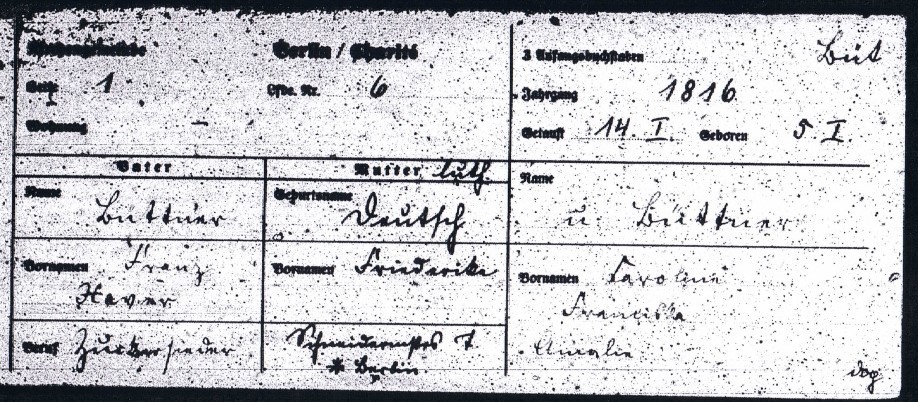 Kirchenbuchstelle Berlin / Charité
Seite 1 Lfde. Nr. 6
Wohnung —
3 Anfangsbuchstaben Büt
Jahrgang 1816
Getauft 14. I. Geboren 5 I.
Vater
Name
Büttner
Vornamen Franz
Xaver
Beruf Zuckersieder
Mutter luth.
Geburtsname
Deutsch
Vornamen Friederike
Schneidermstrs T.
* Berlin
Name
u. Büttner
Vornamen Caroline
Franciska
Amalie